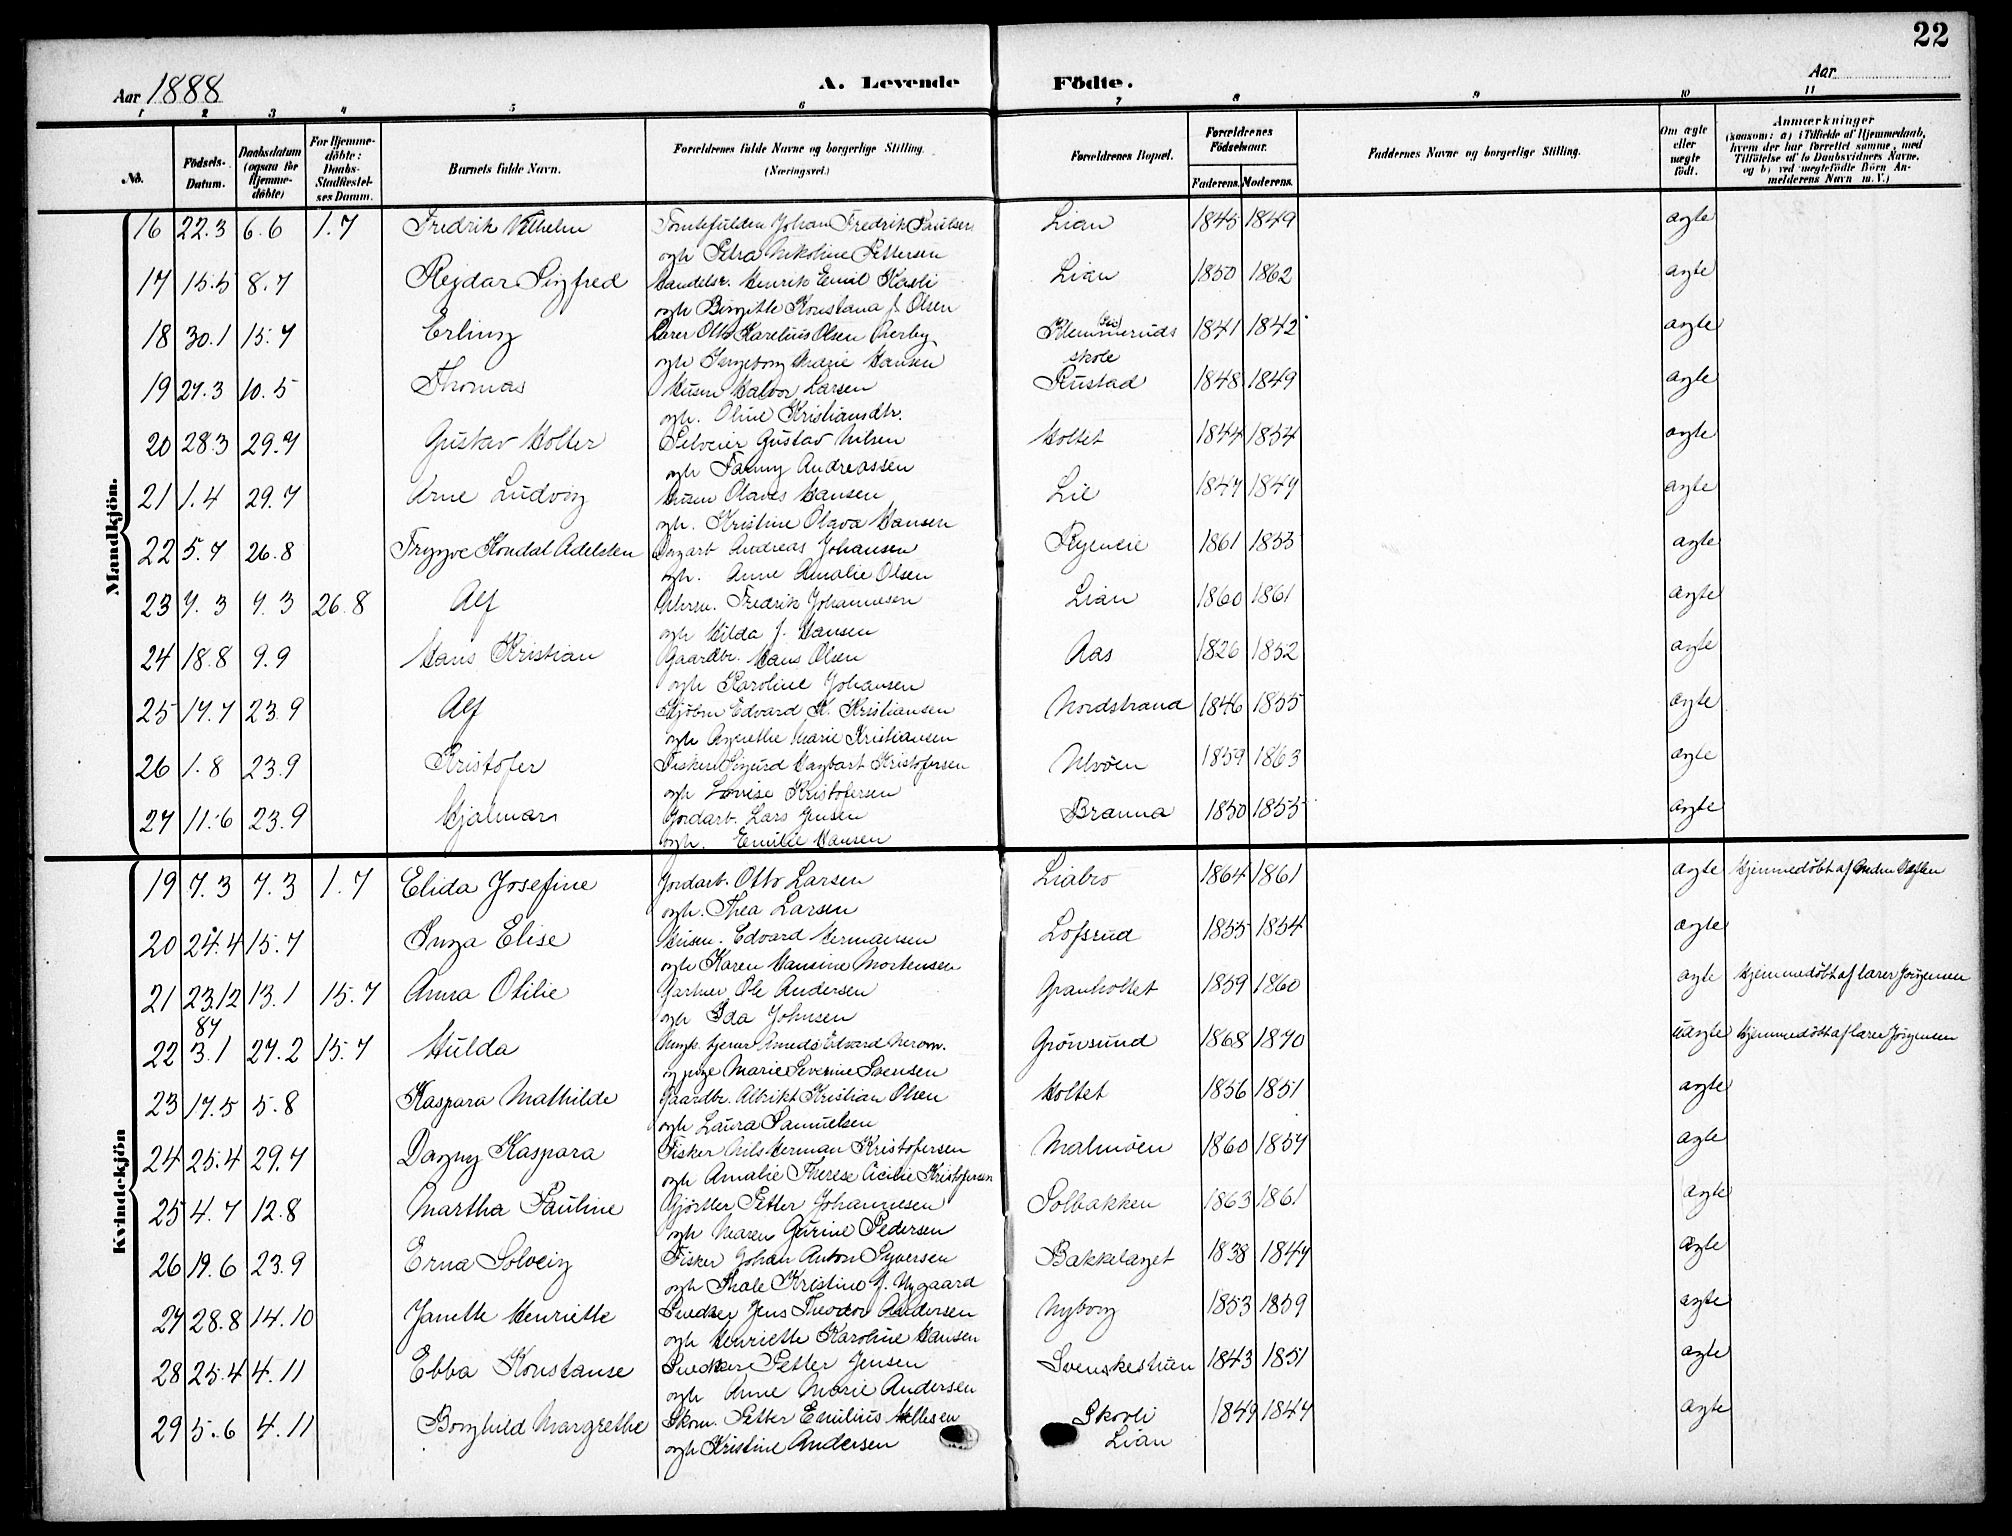 22
Aar 1888
A. Levende Födte.
Aar
1 2 3 4 5 6 7 8 9 10 11
No. Födsels-Datum. Daabsdatum (ogsaa for Hjemme-döbte) For Hjemme-döbte: Daabs-Stadfæstel-ses Datum. Barnets fulde Navn. Forældrenes fulde Navne og borgerlige Stilling. (Næringsvei.) Forældrenes Bopæl. Forældrenes Födselsaar. Faderens. Moderens. Faddernes Navne og borgerlige Stilling. Om ægte eller uægte födt. Anmærkninger (saasom: a) i Tilfælde af Hjemmedaab, hvem der har forrettet samme, med Tilföielse af to Daabsvidners Navne, og b) ved uægtefödte Börn An-melderens Navn m. V.)
Mandkjön.
16 22.3 6.6 1.7 Fredrik Vilhelm Johan Fredrik Paulsen Lian 1845 1849 ægte
ogh Petra Nikoline Pettersen
17 15.5 8.7 Rejdar Sigfred Handelsr. Henrik Emil Kasli Lian 1850 1862 ægte
ogh Birgitte Konstana J. Olsen
18 30.1 15.7 Erling Lærer Otto Karelius Olsen Øverby Klemmeruds 1841 1842 ægte
ogh Ingeborg Marie Hansen skole
19 27.3 10.5 Thomas Husm Halvor Larsen Rustad 1848 1849 ægte
ogh. Oline Kristiansdtr.
20 28.3 29.7 Gustav Holter Gustav Nilsen Holtet 1844 1854 ægte
ogh Fanny Andreassen
21 1.4 29.7 Arne Ludvig Husm Olaves Hansen Lie 1847 1847 ægte
ogh. Kristine Olava Hansen
22 5.7 26.8 Trygve Kondal Adelsten Dagarb Andreas Johansen 1861 1855 ægte
ogh. Anne Amalie Olsen
23 7.3 7.3 26.8 Alf Fredrik Johannesen Lian 1860 1861 ægte
ogh Hilda J. Hansen
24 18.8 9.9 Hans Kristian Gaardbr. Hans Olsen Aas 1826 1852 ægte
ogh Karoline Johansen
25 17.7 23.9 Alf Edvard K. Kristiansen Nordstrand 1846 1855 ægte
ogh Agnethe Marie Kristiansen
26 1.8 23.9 Kristofer Fisker Sigurd Dagbart Kristofersen Ulvöen 1859 1863 ægte
ogh Lovise Kristofersen
27 11.6 23.9 Hjalmar Jordarb. Lars Jensen Branna 1850 1855 ægte
ogh. Emilie Hansen
Kvindekjön
19 7.3 7.3 1.7 Elida Josefine Jordarb. Otto Larsen Liabro 1864 1861 ægte Hjemmedøbt af
ogh. Thea Larsen
20 24.4 15.7 Inga Elise Husm. Edvard Hermansen Lofsrud 1855 1854 ægte
ogh Karen Hansine Mortensen
21 23.12 13.1 15.7 Anna Otilie Gartner Ole Andersen Granholtet 1859 1860 ægte Hjemmedøbt af lærer Jørgensen
87 ogh Ida Johnsen
22 3.1 27.2 15.7 Hulda Grønsund 1868 1870 uægte Hjemmedøbt af lærer Jørgensen
og pige Marie Severine Svensen
23 17.5 5.8 Kaspara Mathilde Gaardbr. Albrikt Kristian Olsen Holtet 1856 1851 ægte
ogh Laura Samuelsen
24 25.4 29.7 Dagny Kaspara Fisker Nils Herman Kristofersen Malmöen 1860 1857 ægte
ogh Amalie Therese Cicilie Kristofersen
25 4.7 12.8 Martha Pauline Gjörtler Petter Johannesen Solbakken 1863 1861 ægte
ogh Maren Gurine Pedersen
26 19.6 23.9 Erna Solveig Fisker Johan Anton Syversen Bakkelaget 1838 1847 ægte
ogh Thale Kristine J. Nygaard
27 28.8 14.10 Janette Henriette Snedker Jens Theodor Andersen Nyborg 1853 1859 ægte
ogh Henriette Karoline Hansen
28 25.4 4.11 Ebba Konstanse Snedker Petter Jensen 1843 1851 ægte
ogh Anne Marie Andersen
29 5.6 4.11 Borghild Margrethe Skom. Petter Emilius Skovli 1849 1847 ægte
ogh Kristine Andersen Lian